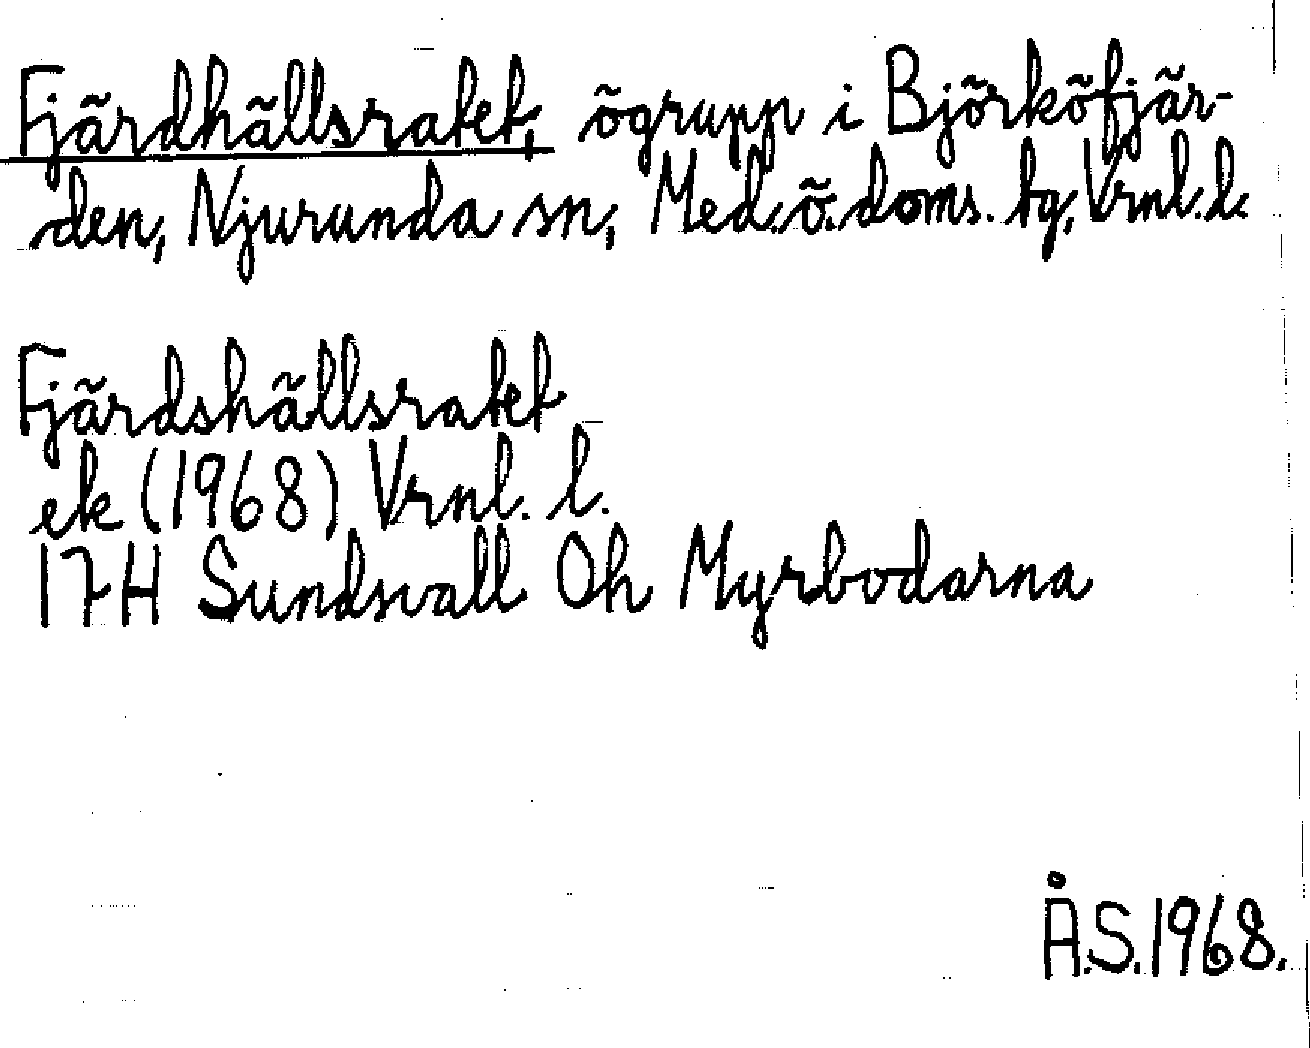 Fjärdhällsratet, ögrupp i Björköfjär-
den, Njurunda sn, Med. ö. doms. tg, Vrnl. l.
Fjärdshällsratet
ek (1968) Vrnl. l.
17H Sundsvall Oh Myrbodarna
Å.S. 1968.